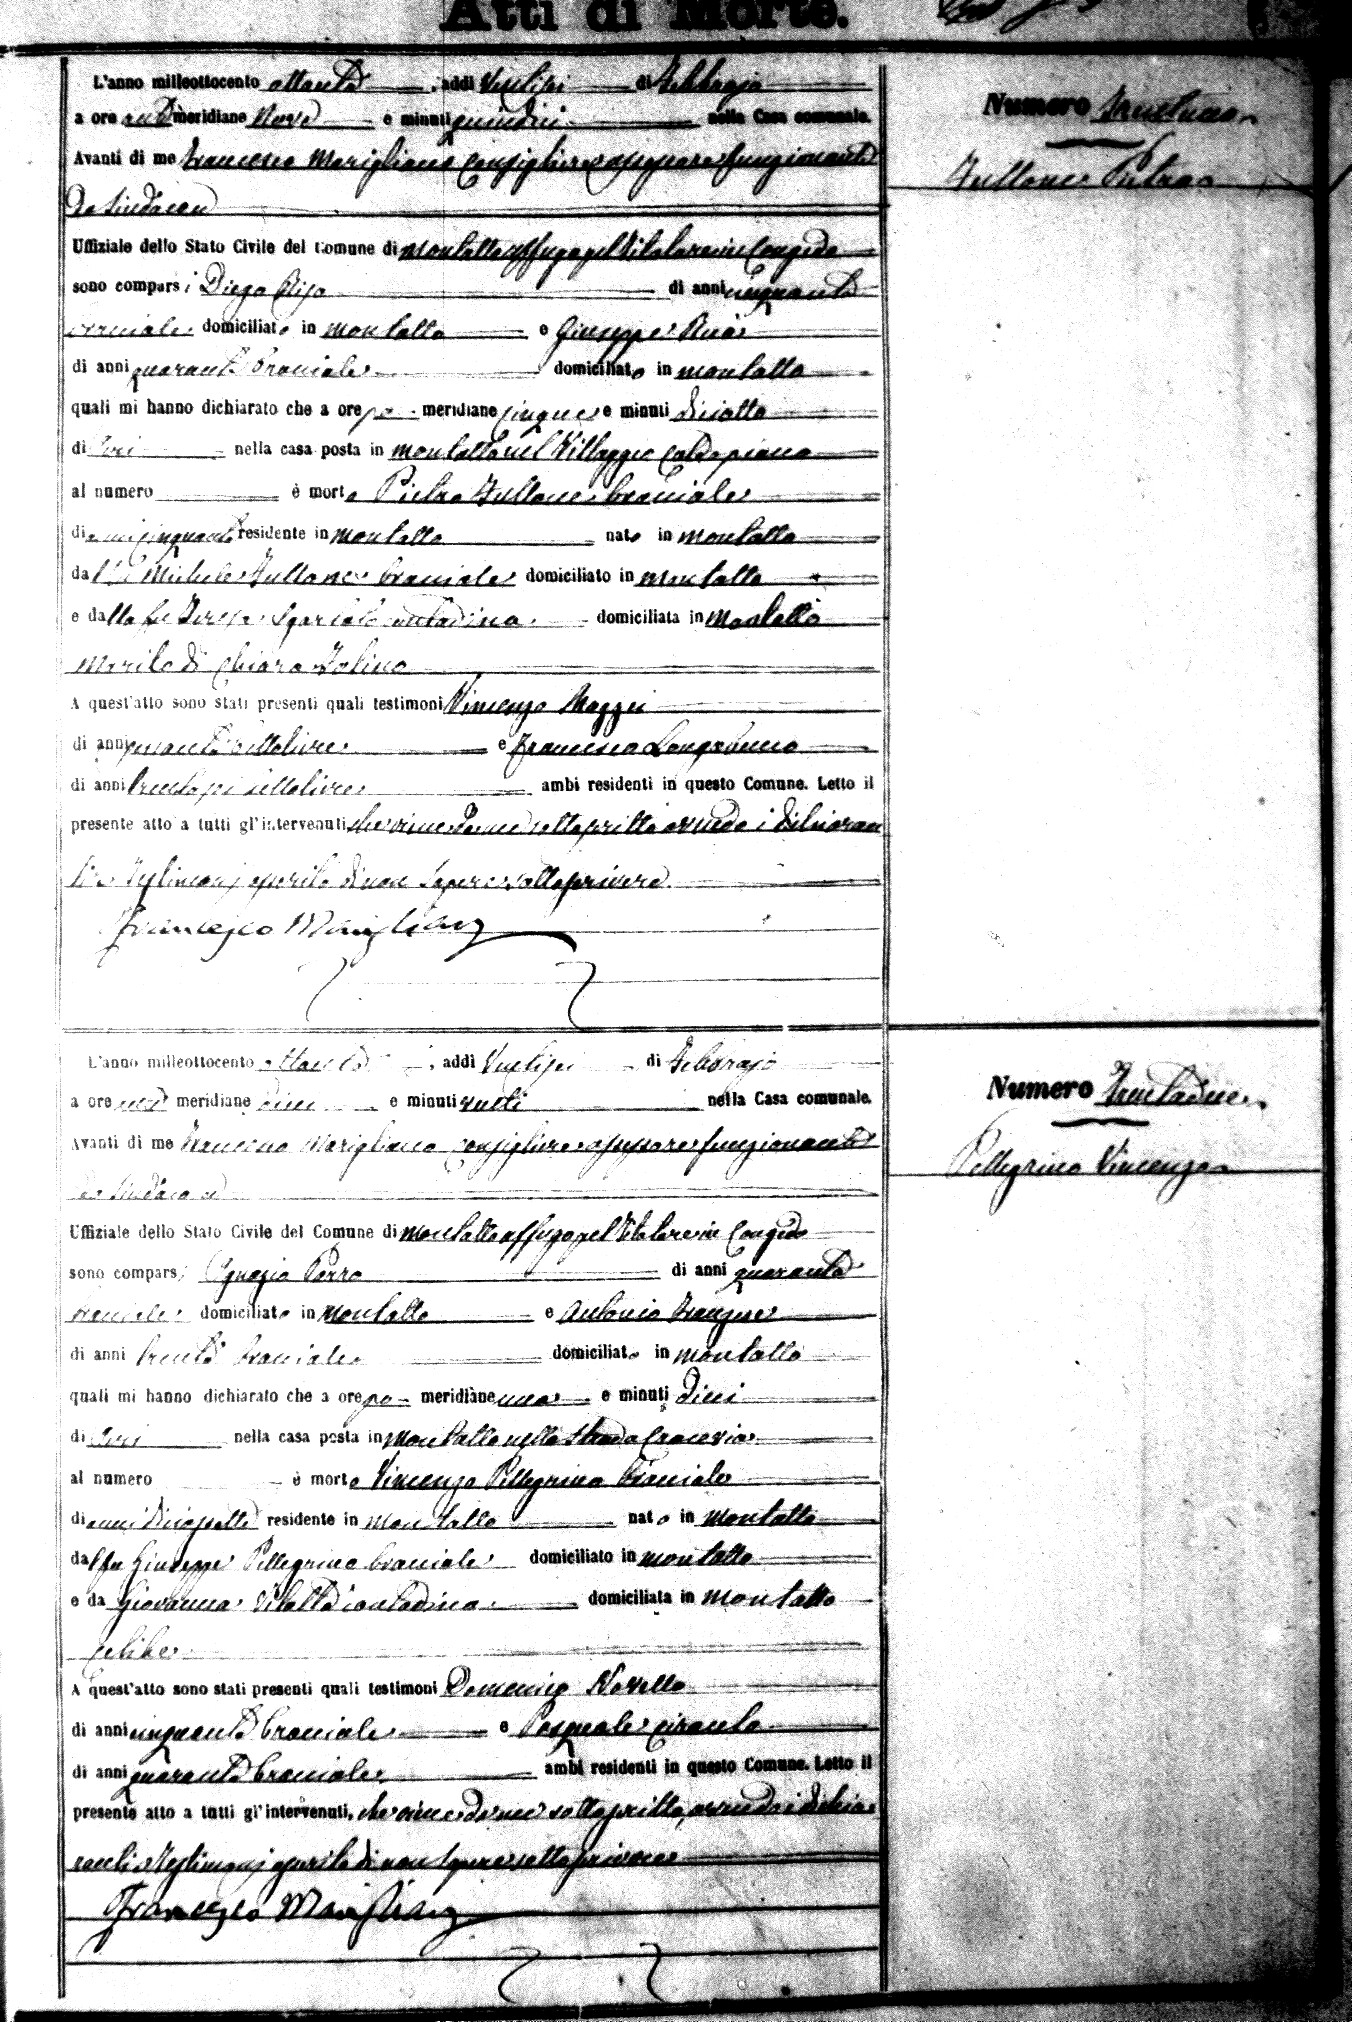 Atti di Morte.
L'anno milleottocento ottanta, addì Ventisei di Febbrajo
a ore anti meridiane Nove e minuti quindici nella Casa comunale.
Avanti di me Francesco Marigliano Consigliere assessore funzionante
da Sindaco
Uffiziale dello Stato Civile del Comune di Montalto Uffugo pel titolare in Congedo
sono comparsi Diego di anni cinquanta
bracciale domiciliato in Montalto e Giuseppe
di anni quaranta bracciale domiciliato in Montalto
quali mi hanno dichiarato che a ore po meridiane cinque e minuti diciotto
di Ieri nella casa posta in Montalto nel Villaggio Caldopiano
al numero è morto Pietro Fullone bracciale
di anni cinquanta residente in Montalto nato in Montalto
dal fu Michele Fullone bracciale domiciliato in Montalto
e dalla fu Teresa contadina domiciliata in Montalto
Marito di Chiara Folino
A quest'atto sono stati presenti quali testimoni Vincenzo Mazzei
di anni quaranta e Francesco Longobucco
di anni ambi residenti in questo Comune. Letto il
presente atto a tutti gl'intervenuti che viene da me sottoscritto avendo i dichiaran
ti e testimonj asserito di non sapere sottoscrivere.
Francesco Marigliano
Numero Trentuno
Fullone Pietro
L'anno milleottocento ottanta, addì Ventisei di Febbrajo
a ore meridiane dieci e minuti venti nella Casa comunale.
Avanti di me Francesco Marigliano Consigliere assessore funzionante
da Sindaco
Uffiziale dello Stato Civile del Comune di Montalto Uffugo pel titolare in Congedo
sono comparsi Ignazio Porro di anni quaranta
bracciale domiciliato in Montalto e Antonio
di anni trenta bracciale domiciliato in Montalto
quali mi hanno dichiarato che a ore po meridiane una e minuti dieci
di Ieri nella casa posta in Montalto nella strada Crocevia
al numero è morto Vincenzo Pellegrino bracciale
di anni diciassette residente in Montalto nato in Montalto
dal fu Giuseppe Pellegrino bracciale domiciliato in Montalto
e da Giovanna contadina domiciliata in Montalto
celibe
A quest'atto sono stati presenti quali testimoni Domenico Novello
di anni cinquanta bracciale e Pasquale
di anni quaranta bracciale ambi residenti in questo Comune. Letto il
presente atto a tutti gl'intervenuti, che viene da me sottoscritto, avendo i dichia
ranti e testimonj asserito di non sapere sottoscrivere
Francesco Marigliano
Numero Trentadue
Pellegrino Vincenzo